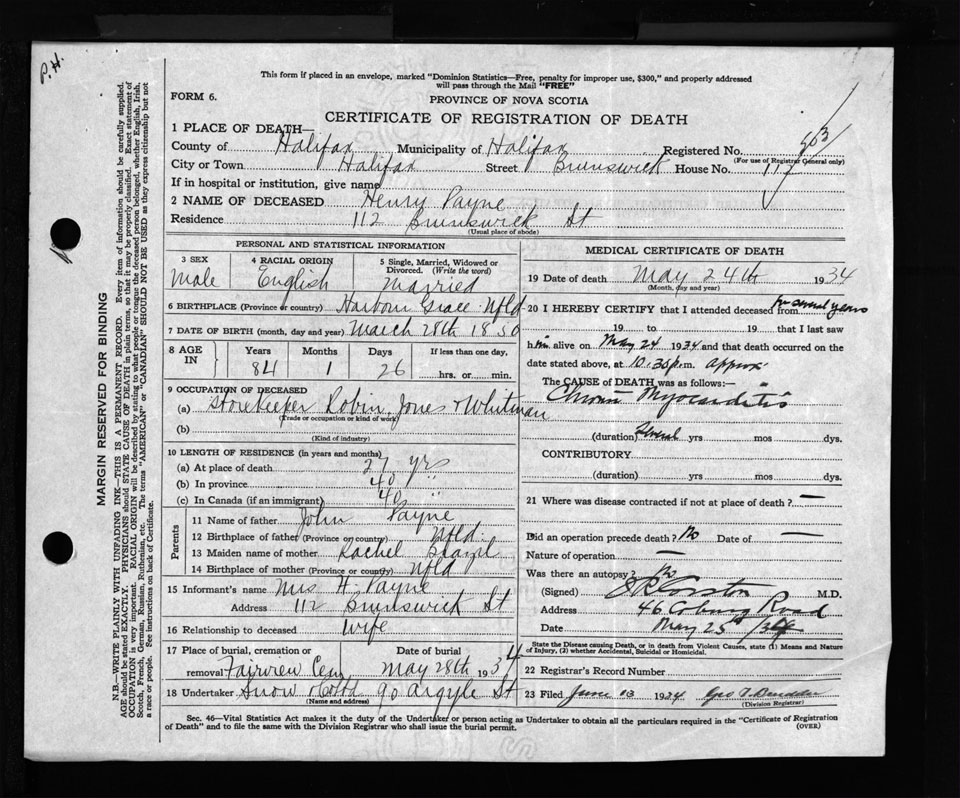 P.H.
This form if placed in an envelope, marked "Dominion Statistics—Free, penalty for improper use, $300," and properly addressed
will pass through the Mail "FREE"
FORM 6.
PROVINCE OF NOVA SCOTIA
CERTIFICATE OF REGISTRATION OF DEATH
1 PLACE OF DEATH—
County of Halifax Municipality of Halifax Registered No.
(For use of Registrar General only)
City or Town Halifax Street Brunswick House No.
If in hospital or institution, give name
2 NAME OF DECEASED Henry Payne
Residence 112 Brunswick St
(Usual place of abode)
PERSONAL AND STATISTICAL INFORMATION
3 SEX 4 RACIAL ORIGIN 5 Single, Married, Widowed or
Divorced. (Write the word)
Male English Married
6 BIRTHPLACE (Province or country) Harbour Grace Nfld
7 DATE OF BIRTH (month, day and year) March 28th 1850
8 AGE IN Years Months Days If less than one day,
84 1 26 hrs. or min.
9 OCCUPATION OF DECEASED
(a) Storekeeper Robin Jones & Whitman
(Trade or occupation or kind of work)
(b)
(Kind of industry)
10 LENGTH OF RESIDENCE (in years and months)
(a) At place of death 27 yrs
(b) In province 40 "
(c) In Canada (if an immigrant) 40 "
Parents
11 Name of father John Payne
12 Birthplace of father (Province or country) Nfld
13 Maiden name of mother Rachel
14 Birthplace of mother (Province or country) Nfld
15 Informant's name Mrs H. Payne
Address 112 Brunswick St
16 Relationship to deceased Wife
17 Place of burial, cremation or Date of burial
removal Fairview Cem May 28th 1934
18 Undertaker Snow & Co Ltd 90 Argyle St
(Name and address)
MEDICAL CERTIFICATE OF DEATH
19 Date of death May 24th 1934
(Month, day and year)
20 I HEREBY CERTIFY that I attended deceased from for several years
19 to 19 that I last saw
him alive on May 24 1934 and that death occurred on the
date stated above, at 10.35 p.m. approx
The CAUSE OF DEATH was as follows:
Chronic Myocarditis
(duration) Several yrs mos dys.
CONTRIBUTORY
(duration) yrs mos dys.
21 Where was disease contracted if not at place of death? —
Did an operation precede death? No Date of —
Nature of operation —
Was there an autopsy? No
(Signed) M.D.
Address 46 Coburg Road
Date May 25th/34
State the Disease causing Death, or in death from Violent Causes, state (1) Means and Nature
of Injury, (2) whether Accidental, Suicidal or Homicidal.
22 Registrar's Record Number
23 Filed June 13 1934
(Division Registrar)
Sec. 46—Vital Statistics Act makes it the duty of the Undertaker or person acting as Undertaker to obtain all the particulars required in the "Certificate of Registration
of Death" and to file the same with the Division Registrar who shall issue the burial permit.
(OVER)
MARGIN RESERVED FOR BINDING
N.B.—WRITE PLAINLY WITH UNFADING INK—THIS IS A PERMANENT RECORD. Every item of information should be carefully supplied.
AGE should be stated EXACTLY. PHYSICIANS should STATE CAUSE OF DEATH in plain terms, so that it may be properly classified. Exact statement of
OCCUPATION is very important. RACIAL ORIGIN will be described by stating to what people or tongue the deceased person belonged, whether English, Irish,
Scotch, French, German, Russian, Ruthenian, etc. The terms "AMERICAN" or "CANADIAN" SHOULD NOT BE USED as they express citizenship but not
a race or people. See instructions on back of Certificate.